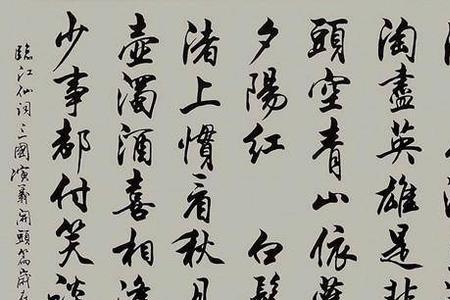 淘盡英雄是非
頭空青山依舊
夕陽紅 白髮
渚上慣看秋月
壺濁酒喜相逢
少事都付笑談
臨江仙詞三國演義開頭篇歲在